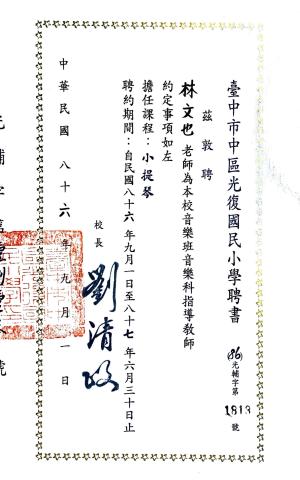 臺中市中區光復國民小學聘書
(86)光輔字第1813號
茲敦聘
林文也老師為本校音樂班音樂科指導教師
約定事項如左
擔任課程：小提琴
聘約期間：自民國八十六年九月一日至八十七年六月三十日止
校長 劉清
中華民國八十六年九月一日
光輔字第
號